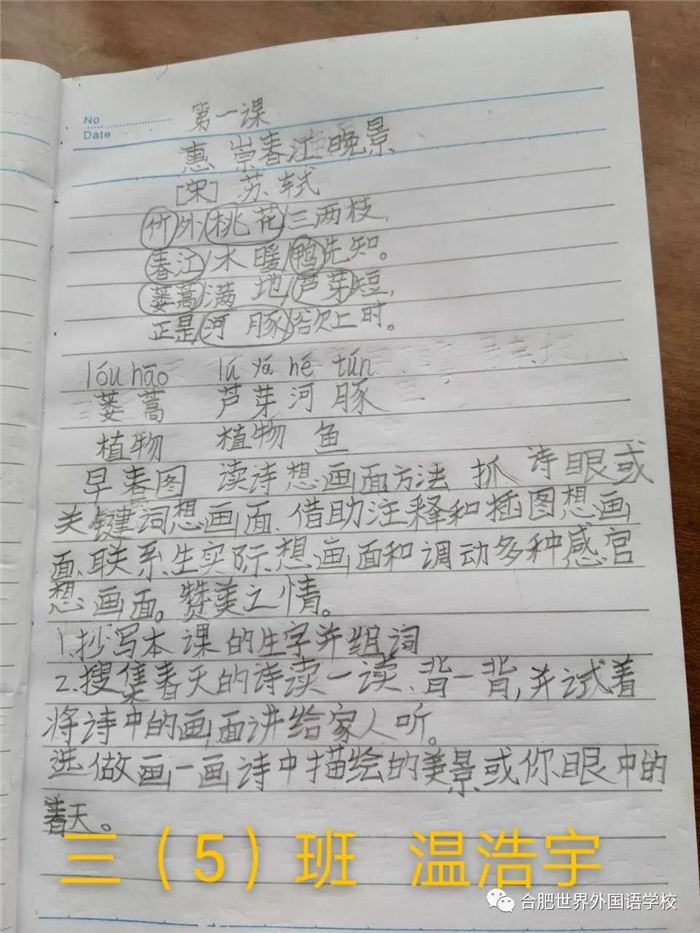 No
Date
第一课
惠崇春江晚景
[宋] 苏轼
竹外/桃花/三两枝,
春江/水暖/鸭先知。
蒌蒿/满地/芦芽短,
正是/河豚/欲上时。
lóu hāo lú yá hé tún
蒌蒿 芦芽河豚
植物 植物 鱼
早春图 读诗想画面方法 抓诗眼或
关键词想画面、借助注释和插图想画
面、联系生实际想画面和调动多种感官
想画面。赞美之情。
1.抄写本课的生字并组词
2.搜集春天的诗读一读、背一背,并试着
将诗中的画面讲给家人听。
选做画一画诗中描绘的美景或你眼中的
春天。
三（5）班 温浩宇
合肥世界外国语学校